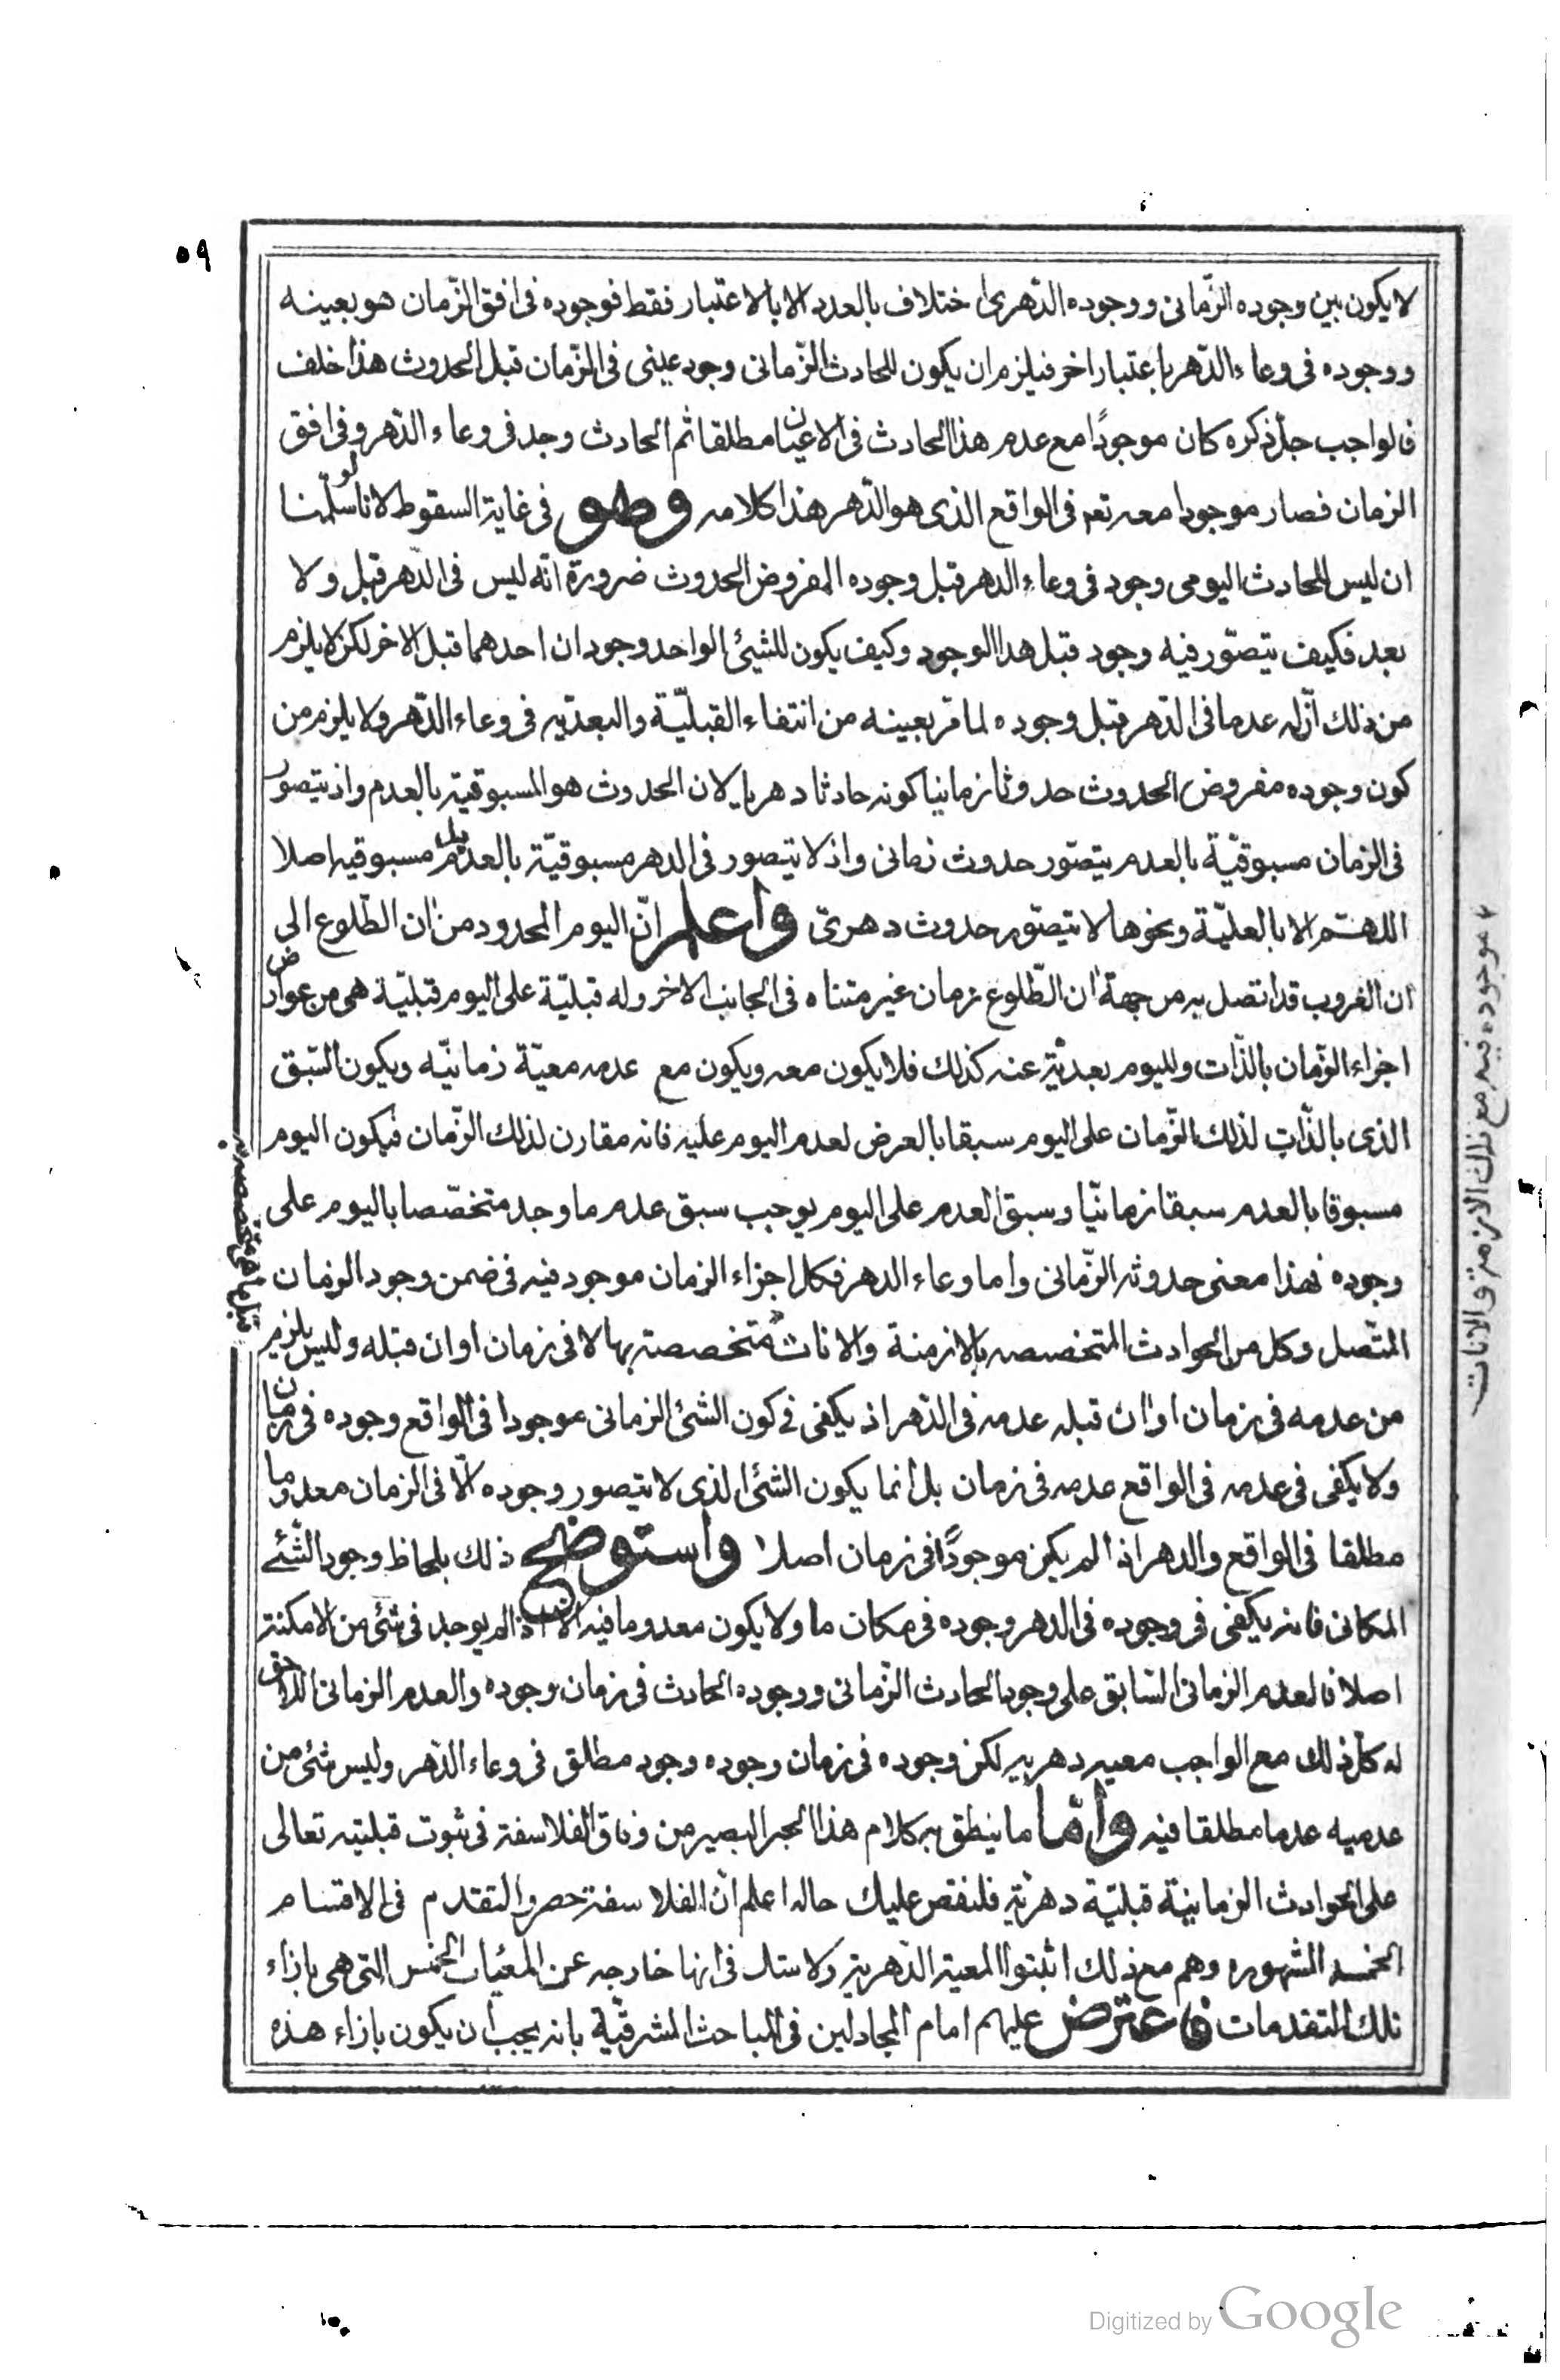 ٥٩
لا يكون بين وجوده الزّمانى ووجوده الدّهرى اختلاف بالعدد الا بالاعتبار فقط فوجوده فى افق الزّمان هو بعينه
ووجوده فى وعاء الدّهر باعتبار اخر فيلزم ان يكون للحادث الزّمانى وجود عينى فى الزّمان قبل الحدوث هذا خلف
فالواجب جلّ ذكره كان موجودًا مع عدم هذا الحادث فى الاعيان مطلقا ثم الحادث وجد فى وعاء الدّهر وفى افق
الزمان فصار موجودا معه تعم فى الواقع الذى هو الدّهر هذا كلامه وهو فى غاية السقوط لانا لو سلّمنا
ان ليس للحادث اليومى وجود فى وعاء الدهر قبل وجوده المفروض الحدوث ضرورة انّه ليس فى الدّهر قبل ولا
بعد فكيف يتصوّر فيه وجود قبل هذا الوجود وكيف يكون للشيئ الواحد وجودان احدهما قبل الاخر لكن لا يلزم
من ذلك انّ له عدما فى الدّهر قبل وجوده لما مرّ بعينه من انتفاء القبليّة والبعديّه فى وعاء الدّهر ولا يلزم من
كون وجوده مفروض الحدوث حدوثا زمانيا كونه حادثا دهريا لان الحدوث هو المسبوقية بالعدم واذ يتصور
فى الزمان مسبوقيّة بالعدم يتصّور حدوث زمانى واذ لا يتصور فى الدهر مسبوقيّة بالعدم بل مسبوقيه اصلا
اللهمّ الا بالعليّة ونحوها لا يتصّور حدوث دهرىّ واعلم انّ اليوم المحدود من ان الطّلوع الى
ان الغروب قد اتصل به من جهة ان الطّلوع زمان غير متناه فى الجانب الاخر وله قبليّة على اليوم قبليّة هى من عوارض
اجزاء الزّمان بالذّات ولليوم بعديّة عنه كذلك فلا يكون معه ويكون مع عدمه معيّة زمانيّه ويكون السّبق
الذى بالذّات لذلك الزّمان على اليوم سبقا بالعرض لعدم اليوم عليه فانه مقارن لذلك الزّمان فيكون اليوم
مسبوقا بالعدم سبقا زمانيّا وسبق العدم على اليوم يوجب سبق عدم ما وجد متخصّصا باليوم على
وجوده فهذا معنى حدوثه الزّمانى واما وعاء الدهر فكل اجزاء الزمان موجود فيه فى ضمن وجود الزمان
المتّصل وكل من الحوادث المتخصصه بالازمنة والانات متخصصة بها لا فى زمان او ان قبله وليس يلزم
من عدمه فى زمان او ان قبله عدمه فى الدّهر اذ يكفى فى كون الشئ الزمانى موجودا فى الواقع وجوده فى زمان
ولا يكفى فى عدمه فى الواقع عدمه فى زمان بل انما يكون الشئ الذى لا يتصور وجوده الّا فى الزمان معدوما
مطلقا فى الواقع والدهر اذا لم يكن موجودًا فى زمان اصلا واستوضح ذلك بلحاظ وجود الشّئ
المكانى فانه يكفى فى وجوده فى الدهر وجوده فى مكان ما ولا يكون معدوما فيه الا اذا لم يوجد فى شئ من الامكنة
اصلا فالعدم الزمانى السّابق على وجود الحادث الزّمانى ووجوده الحادث فى زمان وجوده والعدم الزمانى اللاحق
له كلّ ذلك مع الواجب معيه دهريه لكن وجوده فى زمان وجوده وجود مطلق فى وعاء الدّهر وليس شئ من
عدميه عدما مطلقا فيه وامّا ما ينطق به كلام هذا الحبر البصير من وفاق الفلاسفة فى ثبوت قبليته تعالى
على الحوادث الزمانيّة قبليّة دهريّة فلنقص عليك حاله اعلم انّ الفلاسفة حصروا التقدم فى الاقسام
الخمسه الشهوره وهم مع ذلك اثبتوا المعية الدّهرية ولا شك فى انها خارجه عن المعيّات الخمس التى هى بازاء
تلك التقدمات فاعترض عليهم امام المجادلين فى المباحث المشرقيّة بانه يجب ان يكون بازاء هذه
موجوده فيه مع ذلك الازمنة والانات
Digitized by Google